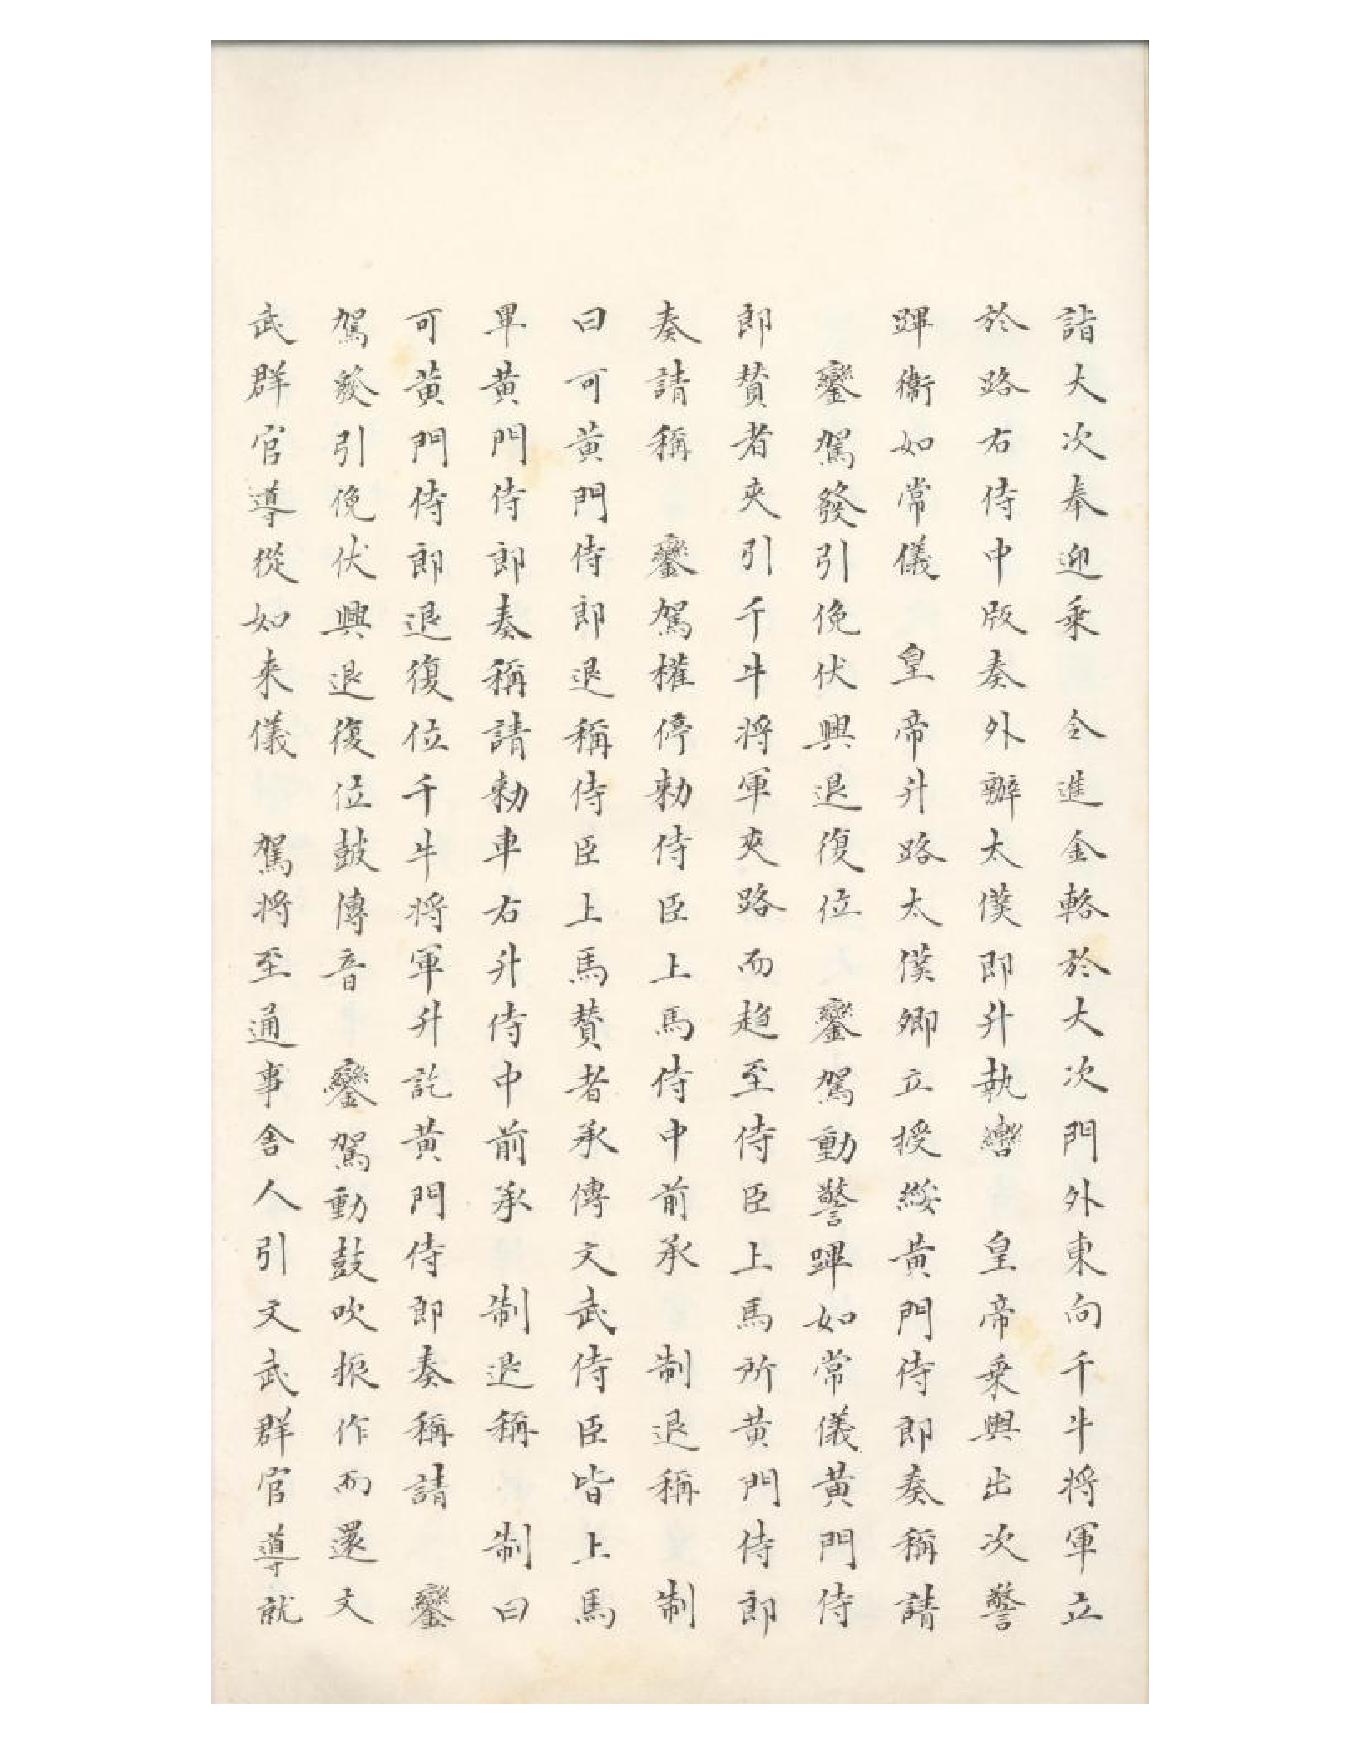 詣大次奉迎乗　令進金輅於大次門外東向千牛将軍立
於路右侍中版奏外辦太僕即升執轡　皇帝乗輿出次警
蹕衞如常儀　皇帝升路太僕卿立授綏黄門侍郎奏稱請
　鑾駕發引俛伏興退復位　鑾駕動警蹕如常儀黄門侍
郎賛者夾引千牛将軍夾路而趨至侍臣上馬所黄門侍郎
奏請稱　鑾駕權停勑侍臣上馬侍中前承　制退稱　制
曰可黄門侍郎退稱侍臣上馬賛者承傳文武侍臣皆上馬
畢黄門侍郎奏稱請勑車右升侍中前承　制退稱　制曰
可黄門侍郎退復位千牛将軍升訖黄門侍郎奏稱請　鑾
駕發引俛伏興退復位鼓傳音　鑾駕動鼓吹振作而還文
武群官導從如来儀　駕将至通事舎人引文武群官導就